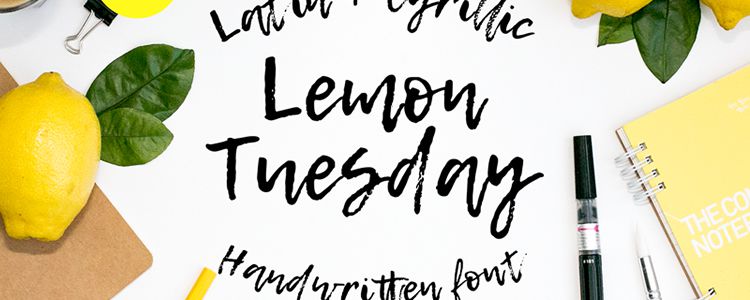 Latin + Cyrillic
Lemon
Tuesday
Handwritten font
THE CO
NOTE